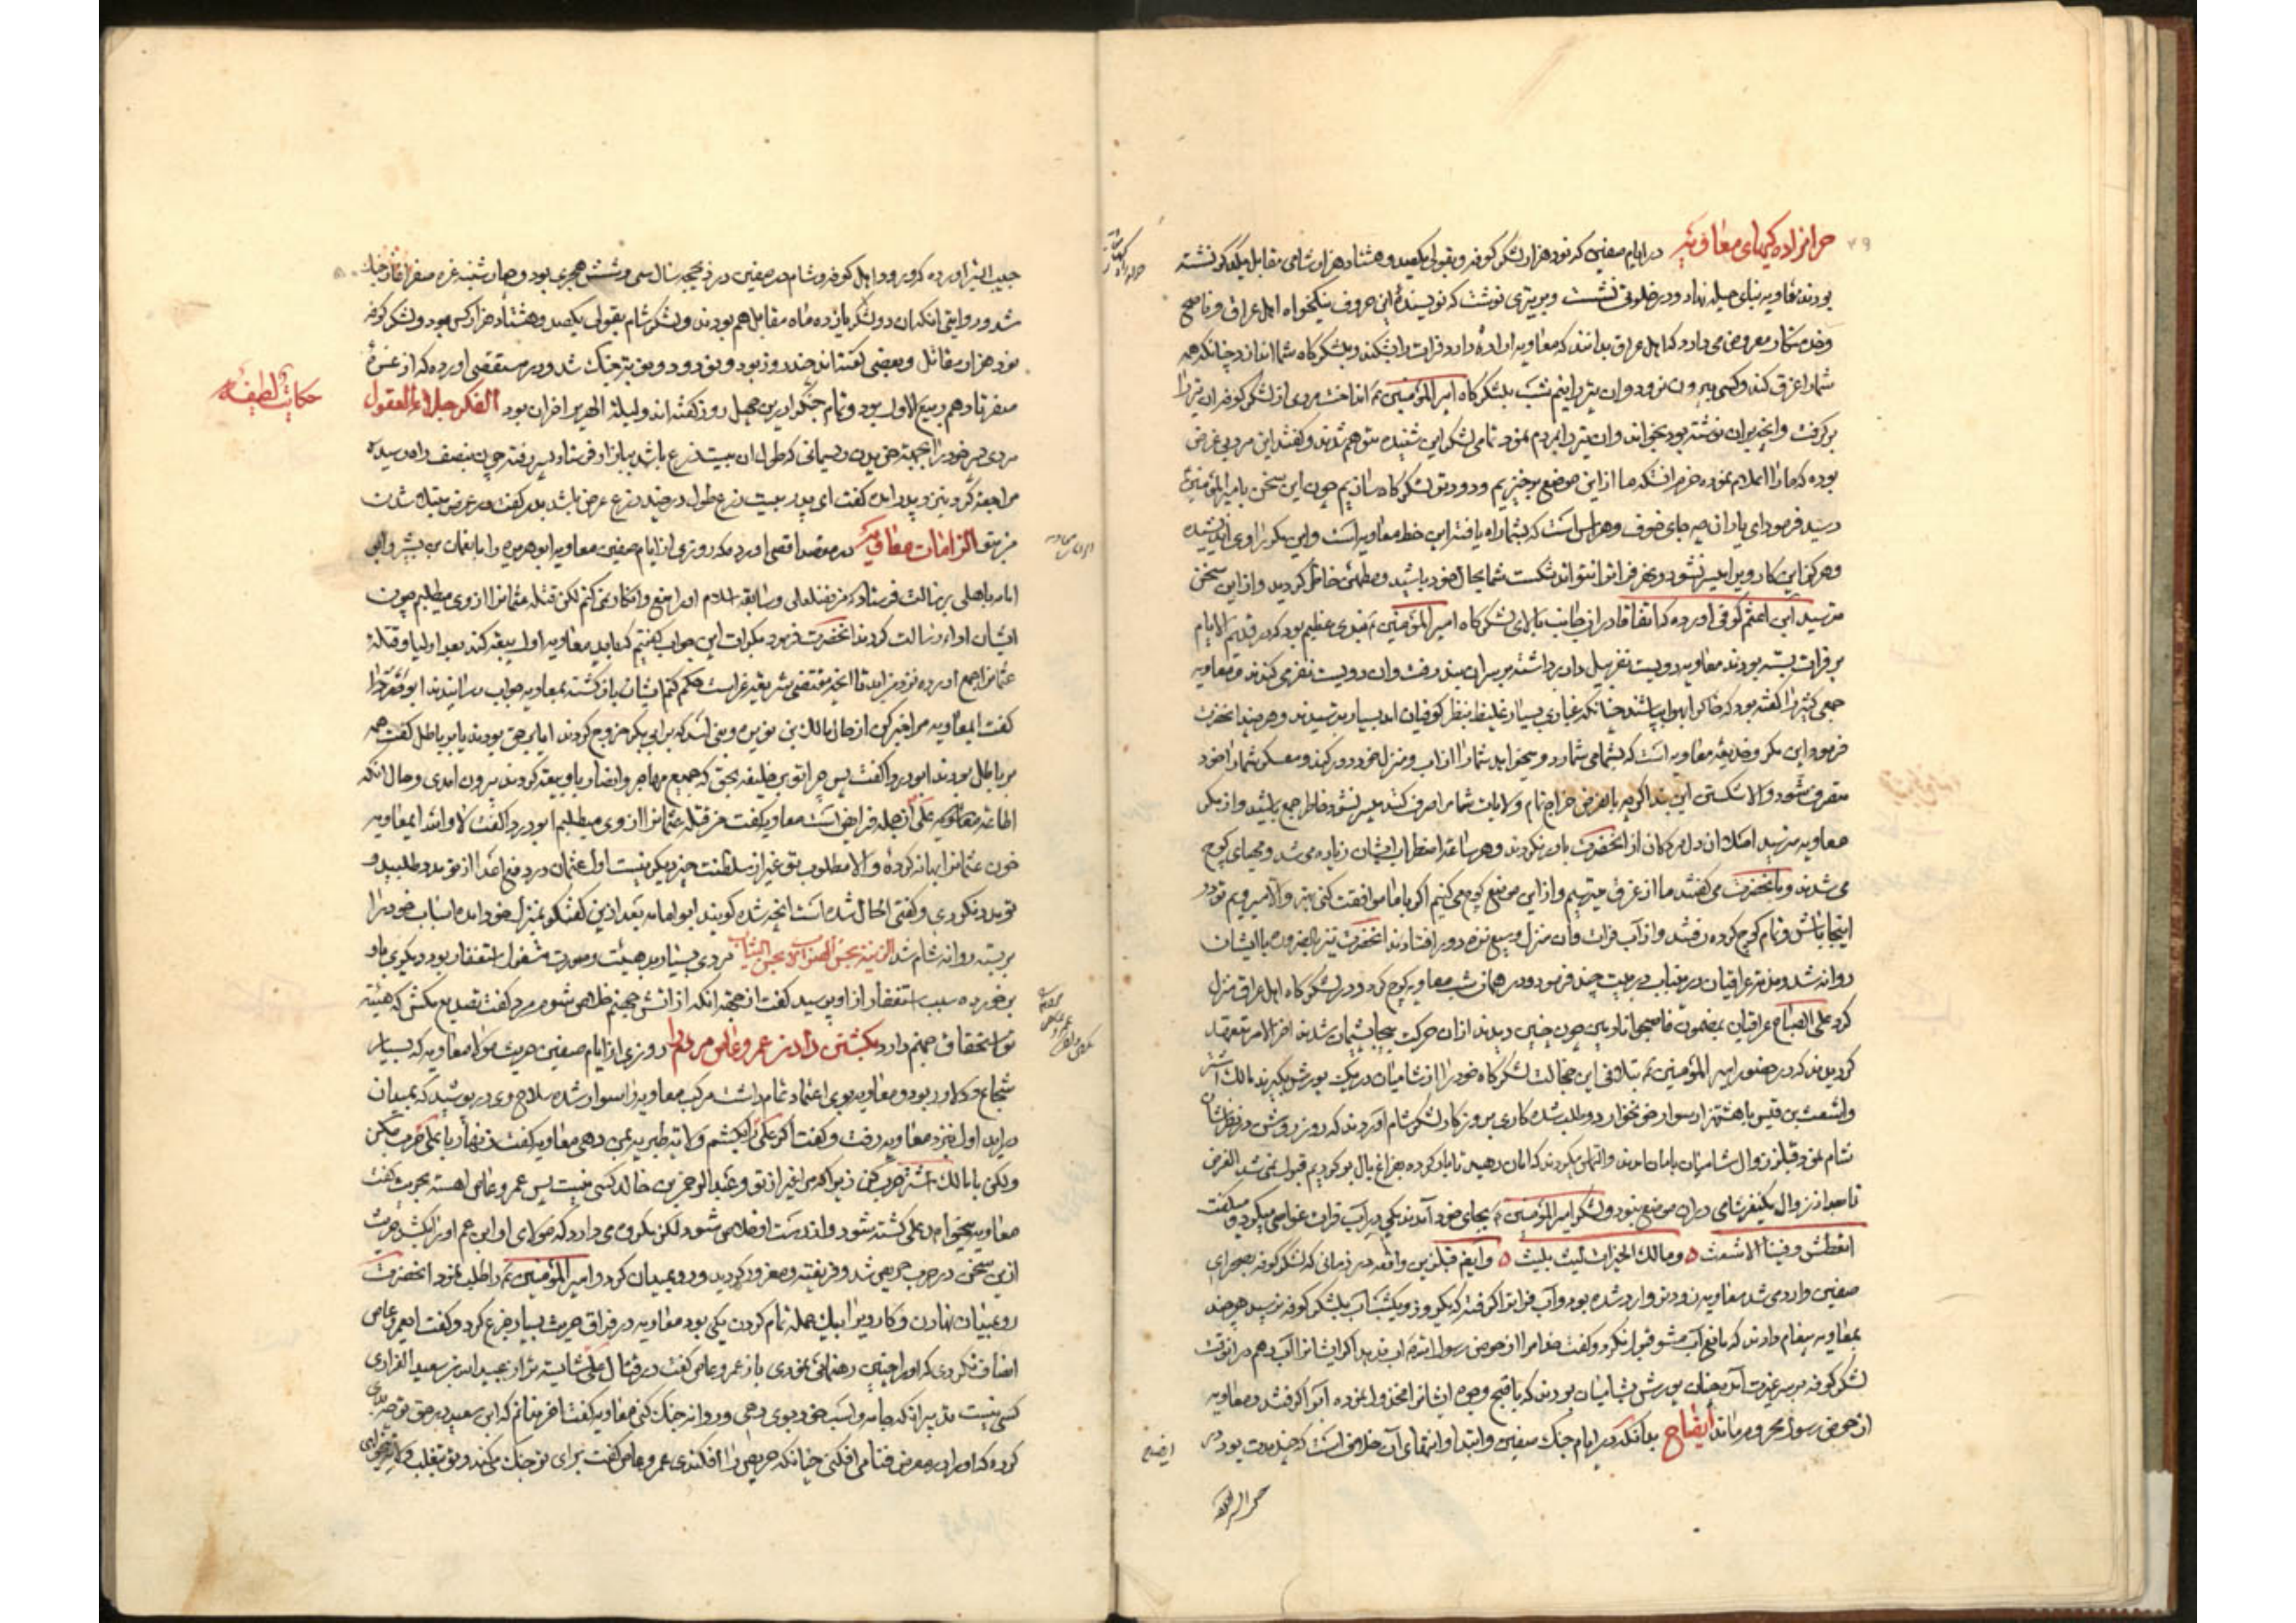 حرامزاده کیهای معاویه در ایام صفین که نود هزار لشکر کوفه و بقولی یکصد و هشتاد هزار شامی مقابل یکدیکر نشسته
بودند معاویه بنای حیله نهاد و در خلوتی نشست و بر تیری نوشت که نویسندهٔ این حروف نیکخواه اهل عراق و ناصح
معروض می دارد که اهل عراق بدانند که معاویه اراده دارد فرات را بشکند و بلشکرکاه شما اندازد چنانکه همه
شما را غرق کند و کسی بیرون نرود و ان تیر را نیم شب بلشکرکاه امیر المؤمنین انداخت مردی از لشکر کوفه ان تیر را
برکرفت و انچه بران نوشته بود بخواند و ان تیر را بمردم نمود تمامی لشکر این شنیده متوهم شدند و کفتند این مرد بی غرض
بوده که ما را اعلام نموده حزم انست که ما از این موضع برخیزیم و دور تر لشکرکاه سازیم چون این سخن بامیر المؤمنین
رسید فرمود ای یاران چه جای خوف و هراس است که بشما راه یافته این خط معاویه است و این مکر را وی اندیشیده
و هرکز این کار ویرا میسر نشود و نهر فرات را نتواند شکست شما بحال خود باشید و مطمئن خاطر کردید و از این سخن
مترسید ابن اعثم کوفی اورده که اتفاقا در ان جانب بالای لشکرکاه امیر المؤمنین بندی عظیم بود که در قدیم الایام
بر فرات بسته بودند معاویه دویست نفر بیل دار برداشته بر سر ان بند رفت و ان دویست نفر می کندند و معاویه
جمعی کثیر را کفته بود که خاک را بهوا پاشند چنانکه غباری بسیار غلیظ بنظر کوفیان امد بسیار بترسیدند و هر چند انحضرت
فرمود این مکر و خدیعه معاویه است که بشما می شمارد و میخواهد شما را از اب و منزل خود دور کند و معسکر شما را خود
متصرف شود والا شکستن این بند اکر چه بالفرض خراج تمام ولایات شام را صرف کند میسر نشود خاطر جمع باشید و از مکر
معاویه مترسید اصلا ان دل مردکان از انحضرت باور نکردند و هر ساعة اضطراب ایشان زیاده می شد و مهیای کوچ
می شدند و بانحضرت می کفتند ما از غرق میترسیم و از این موضع کوچ می کنیم اکر با ما موافقت کنی بهتر والا میرویم تو در
اینجا باش و تمام کوچ کرده رفتند و از آب فرات و ان منزل وسیع نزه دور افتادند انحضرت نیز بالضروره با ایشان
روانه شد و مذمت عراقیان در ین باب در بیت چند فرمود و در همان شب معاویه کوچ کرد و در لشکرکاه اهل عراق منزل
کرد علی الصباح عراقیان بمضمون فاصبحوا نادمین چون چنین دیدند از ان حرکت بیجا پشیمان شدند اخر الامر متعهد
کردیدند که در حضور امیر المؤمنین بتلافی این خجالت لشکرکاه خود را از شامیان در یک یورش بکیرند مالک اشتر
و اشعث بن قیس با هشت هزار سوار خونخوار دو طلب شده کاری بروزکار لشکر شام آوردند که روز روشن در نظرشان
شام نمود قبل از زوال شامیان بامان امدند و التماس میکردند که امان دهید تا بار کرده بفراغ بال بر کردیم قبول نمی شد الغرض
تا بعد از زوال یکنفر شامی دران موضع نبود و لشکر امیر المؤمنین بجای خود آمدند یکی در آب فرات غواصی میکرد و میکفت
انعطش و فینا الاشعث ٥ و مالک الخیرات لیث یلیث ٥ و ایضا قبل ازین واقعه در زمانی که لشکر کوفه بصحرای
صفین وارد می شد معاویه زودتر وارد شده بود و آب فرات را کرفته که یکروز و یکشب آب بلشکر کوفه نرسید هر چند
بمعاویه پیغام دادند که مانع آب مشو قبول نکرد و کفت خدا مرا از حوض رسول اب ندهد اکر ایشانرا آب دهم در انوقت
لشکر کوفه بر سر غیرت آمد چنان یورش بشامیان بردند که باقبح وجوه ایشانرا منخذول نموده آبرا کرفتند و معاویه
از حوض رسول محروم ماند ایضاح بدانکه در ایام جنک صفین و ابتدا و انتهای آن خلافی است که چند مدت بود در
ایضاح
حبیب السیر اورده که ورود اهل کوفه و شام در صفین در ذیحجه سال سی و شش هجری بود و چهارشنبه غره صفر اغاز جنک
شد و روایتی انکه ان دو لشکر یازده ماه مقابل هم بودند و لشکر شام بقولی یکصد و هشتاد هزار کس بود و لشکر کوفه
نود هزار مقاتل و بعضی کفته اند چند روز بود و نود و دو نوبت جنک شد و در مستقصی اورده که از غره
صفر تا دهم ربیع الاول بود و تمام جنکرا درین چهل روز کفته اند و لیلة الهریر اخران بود الفکر جلاء العقول
حکایات لطیفه
مردی پسر خود را بجهة خریدن ریسمانی که طول ان بیست ذرع باشد ببازار فرستاد پسر رفته چون بنصف راه رسیده
مراجعه کرد و نزد پدر امده کفت ای پدر بیست ذرع طول در چند ذرع عرض باشد پدر کفت در عرض مبتلا شدن
من بتو الزامات معاویه در مقصد اقصی اورده که روزی از ایام صفین معاویه ابوهریره را با نعمان بن بشیر و ابی
امامه باهلی برسالت فرستاد که من فضل علی و سابقه اسلام او را منع و انکار نمی کنم لکن قتله عثمانرا از وی میطلبم چون
ایشان اداء رسالت کردند انحضرت فرمود مکرات این جواب کفتم که باید معاویه اول بیعة کند بعد اولیا و قتلهٔ
عثمانرا جمع اورده نزد من اید تا انچه مقتضی شریعة غراست حکم کنم ایشان باز کشتند بمعاویه جواب رسانیدند ابودردا
کفت ایمعاویه مرا خبر کن از حال مالک بن نویره و بنی اسد که بر ابی بکر خروج کردند ایا بر حق بودند یا بر باطل کفت همه
بر باطل بودند ابودردا کفت پس چرا تو بر خلیفه بحق که جمیع مهاجر و انصار باو بیعة کردند بیرون امدی و حال انکه
اطاعة علی از جمله فرایض است معاویه کفت من قتله عثمانرا از وی میطلبم ابودردا کفت لا والله ایمعاویه
خون عثمانرا بهانه کرده والا مطلوب تو غیر از سلطنت چیز دیکر نیست اول عثمان در دفع اعدا از تو مدد طلبید و
تو مدد نکردی و کفتی الحال شده است انچه شده کویند ابو امامه بعد ازین کفتکو بمنزل خود امده اسباب خود را
بر بسته روانه شام شد مردی بسیار بد هیئت و صورت مشغول استغفار بود دیکری باو
برخورده سبب استغفار از او پرسید کفت از جهة انکه از اتش جهنم خلاص شوم مرد کفت تصدیع مکش که هیئة
تو استحقاق جهنم دارد بکشتن دادن عمرو عاص مردم را روزی از ایام صفین حریث مولا معاویه که بسیار
شجاع و دلاور بود و معاویه بوی اعتماد تمام داشت مرکب معاویه را سوار شده سلاح وی در پوشید که بمیدان
دراید اول نزد معاویه رفت و کفت اکر علی را بکشم ولایة طبریه بمن دهی معاویه کفت زنهار با علی حرب مکن
ولکن با مالک اشتر حرب کن زیرا که مرا غیر از تو و عبدالرحمن بن خالد کسی نیست پس عمرو عاص اهسته بحریث کفت
معاویه میخواهد علی کشته شود و از دست او خلاص شود لکن مکروه می دارد که مولای او ابن عم او را بکشد حریث
ازین سخن در حرب حریص شد و فریفته و مغرور کردید و رو بمیدان کرد و امیر المؤمنین را طلب نمود انحضرت
رو بمیدان نهادن و کار ویرا بیک حمله تمام کردن یکی بود معاویه در فراق حریث بسیار جزع کرد و کفت ایعمرو عاص
انصاف نکردی که او را چنین رهنمائی نمودی باز عمرو عاص کفت در قتال علی شایسته تر از عبید الله بن سعید الفزاری
کسی نیست تدبیر انکه جامه و اسب خود بوی دهی و روانه جنک کنی معاویه کفت اخر نفهم که ابن سعید در حق تو چه بدی
کرده که او را در معرض فنا می افکنی چنانکه حریص را افکندی عمرو عاص کفت برای تو جنک میکند و تو بتغلب